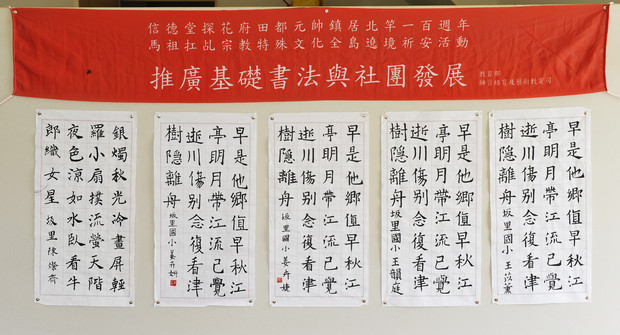 信德堂探花府田都元帥鎮居北竿一百週年
馬祖扛乩宗教特殊文化全島遶境祈安活動
推廣基礎書法與社團發展
教育部
早是他鄉值早秋江
亭明月帶江流已覺
逝川傷别念復看津
樹隱離舟 坂里國小 王
早是他鄉值早秋江
亭明月帶江流已覺
逝川傷别念復看津
樹隱離舟 坂里國小 王韻庭
早是他鄉值早秋江
亭明月帶江流已覺
逝川傷别念復看津
樹隱離舟 坂里國小 姜卉婕
早是他鄉值早秋江
亭明月帶江流已覺
逝川傷别念復看津
樹隱離舟 坂里國小 姜卉
銀燭秋光冷畫屏輕
羅小扇撲流螢天階
夜色涼如水臥看牛
郎織女星 坂里 陳